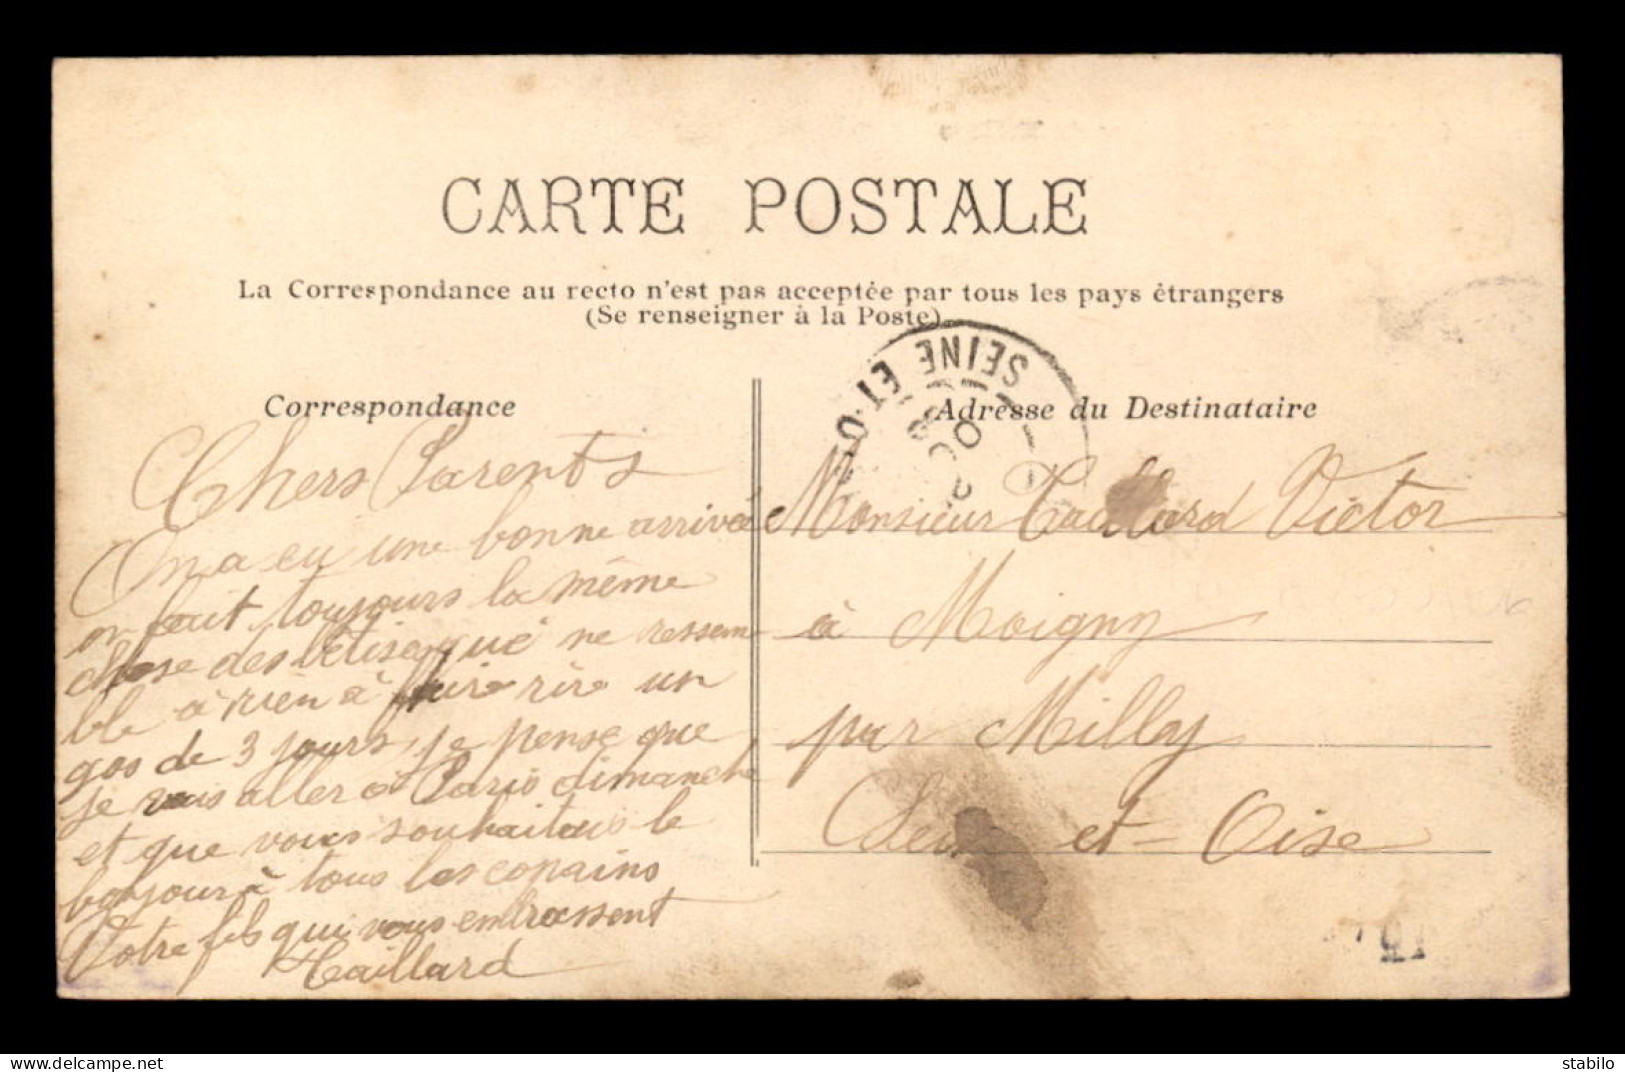 CARTE POSTALE
La Correspondance au recto n'est pas acceptée par tous les pays étrangers
(Se renseigner à la Poste)
Correspondance
Chers Parents
On a eu une bonne arrivée
on fait toujours la même
chose des bêtise que ne ressem
ble à rien à faire rire un
gos de 3 jours, je pense que
je vais aller a Paris dimanche
et que vous souhaitais le
bonjour à tous les copains
Votre fils qui vous embrassent
Taillard
SEINE ET-O
Adresse du Destinataire
Monsieur Taillard Victor
à Moigny
par Milly
Seine et-Oise
stabilo